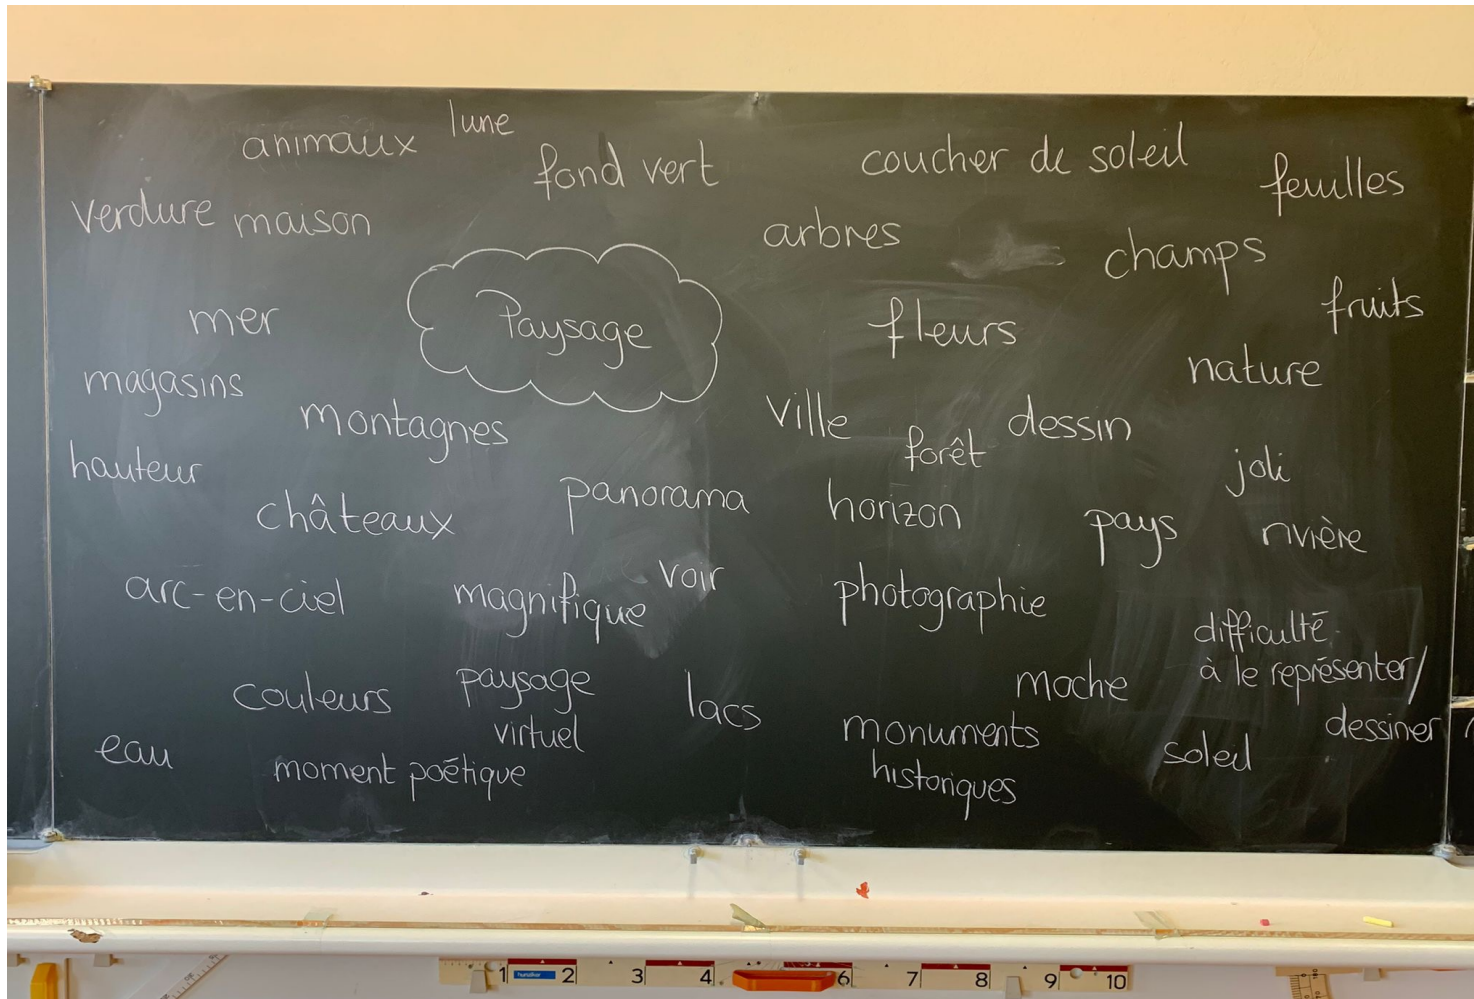 animaux
lune
fond vert
coucher de soleil
feuilles
verdure
maison
arbres
champs
mer
Paysage
fleurs
fruits
magasins
montagnes
ville
forêt
dessin
nature
hauteur
châteaux
panorama
horizon
pays
joli
rivière
arc-en-ciel
magnifique
voir
photographie
difficulté
à le représenter/
dessiner
couleurs
paysage
virtuel
lacs
moche
eau
moment poétique
monuments
historiques
soleil
1 2 3 4 6 7 8 9 10